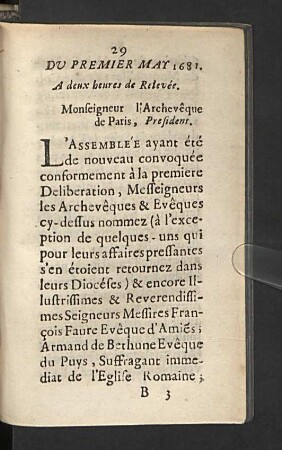 29
DU PREMIER MAY 1681.
A deux heures de Relevée.
Monseigneur l'Archevêque
de Paris, President.
L'ASSEMBLÉE ayant été
de nouveau convoquée
conformement à la premiere
Deliberation, Messeigneurs
les Archevêques & Evêques
cy-dessus nommez (à l'exce-
ption de quelques-uns qui
pour leurs affaires pressantes
s'en étoient retournez dans
leurs Diocéses) & encore Il-
lustrissimes & Reverendissi-
mes Seigneurs Messires Fran-
çois Faure Evêque d'Amiés;
Armand de Bethune Evêque
du Puys, Suffragant imme-
diat de l'Eglise Romaine;
B 3